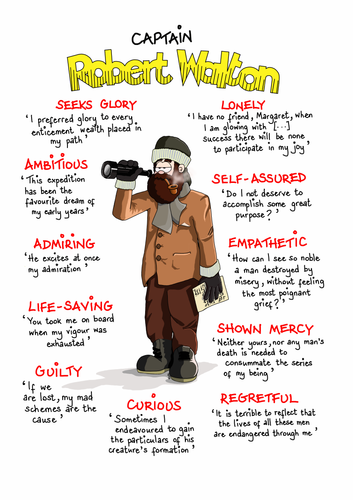 CAPTAIN
Robert Walton
SEEKS GLORY
'I preferred glory to every
enticement wealth placed in
my path'
AMBITIOUS
'This expedition
has been the
favourite dream of
my early years'
ADMIRING
'He excites at once
my admiration'
LIFE-SAVING
'You took me on board
when my vigour was
exhausted'
GUILTY
'If we
are lost, my mad
schemes are the
cause'
CURIOUS
'Sometimes I
endeavoured to gain
the particulars of his
creature's formation'
LONELY
'I have no friend, Margaret, when
I am glowing with [...]
success there will be none
to participate in my joy'
SELF-ASSURED
'Do I not deserve to
accomplish some great
purpose?'
EMPATHETIC
'How can I see so noble
a man destroyed by
misery, without feeling
the most poignant
grief?'
SHOWN MERCY
'Neither yours, nor any man's
death is needed to
consummate the series
of my being'
REGRETFUL
'It is terrible to reflect that
the lives of all these men
are endangered through me'